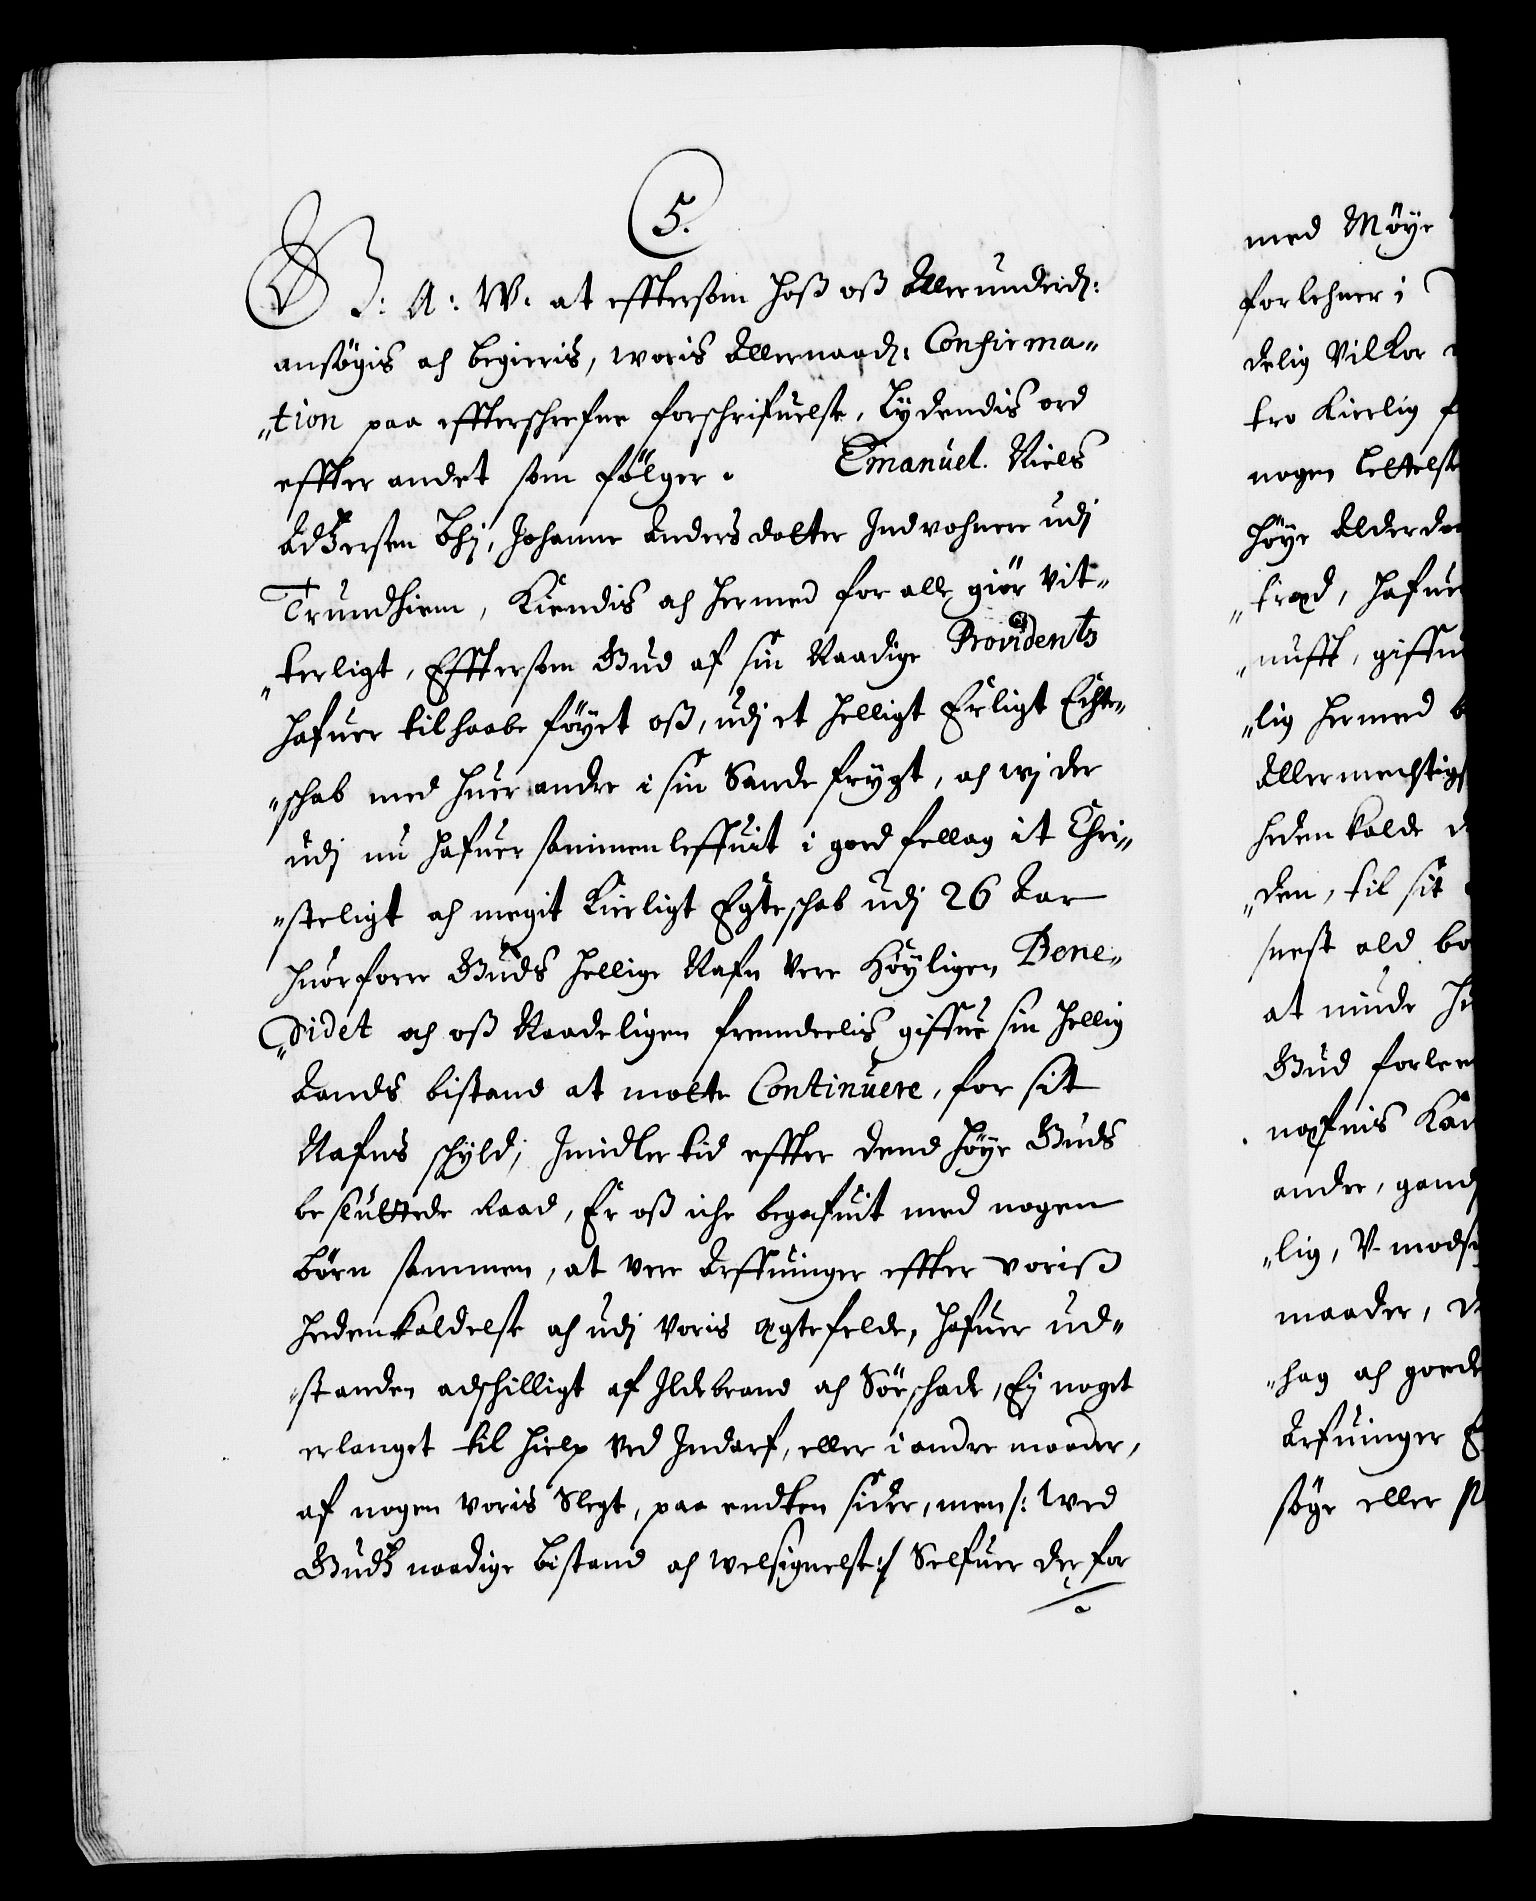 5.
G: A: W: at efftersom hoß oß Allerunderd:
ansøgis och begieris, woris Allernaad: Confirma„
„tion paa effterschrefne forschrifuelse, Lydendis ord
effter andet som fölger. Emanuel. Niels
Johanne Andersdatter Indvohnere udj
Trundhiem, Kiendis och hermed for alle giör vit„
„terligt, Efftersom Gud af sin Naadige Providentz
hafuer tilhaabe föyet oß, udj et helligt Erligt Echte„
„schab med huer andre i sin Sande frygt, och wj der
udj nu hafuer sammenleffuit i goed fellag it Chri„
„steligt och megit Kierligt Egteschab udj 26 Aar
huorforre Guds hellige Nafn vere Höyligen Bene„
„didet och oß Naadeligen fremdeelis giffue sin hellig
Aands bistand at motte Continuere, for sit
Nafns schyld; Imidlertid effter dend höye Guds
besluttede Raad, Er oß iche begafuit med nogen
börn sammen, at vere Arffuinger effter voriß
hedenkaldelse och udj voris Ægtefelde, hafuer ud„
„standen adschilligt af Ildebrand och Söeschade, Ej noget
erlanget til hielp ved Indarf, eller i andre maader,
af nogen voris Slegt, paa endten sider, men /: wed
Gudz naadige bistand och welsignelse :/ Selfuer der for
med Möye
forlehner i
delig Vilkor
tro Kierlig
nogen lettelse
höye Alderdom
„træd, hafuer
„nufft, giffue
„lig hermed
Allermechtigst
hedenkalde
„den, til sit
nest ald
at minde
Gud forleene
nafnis
andre, gand
„lig, V-mods
maader,
„hag och goede
Arfuinger
söge eller